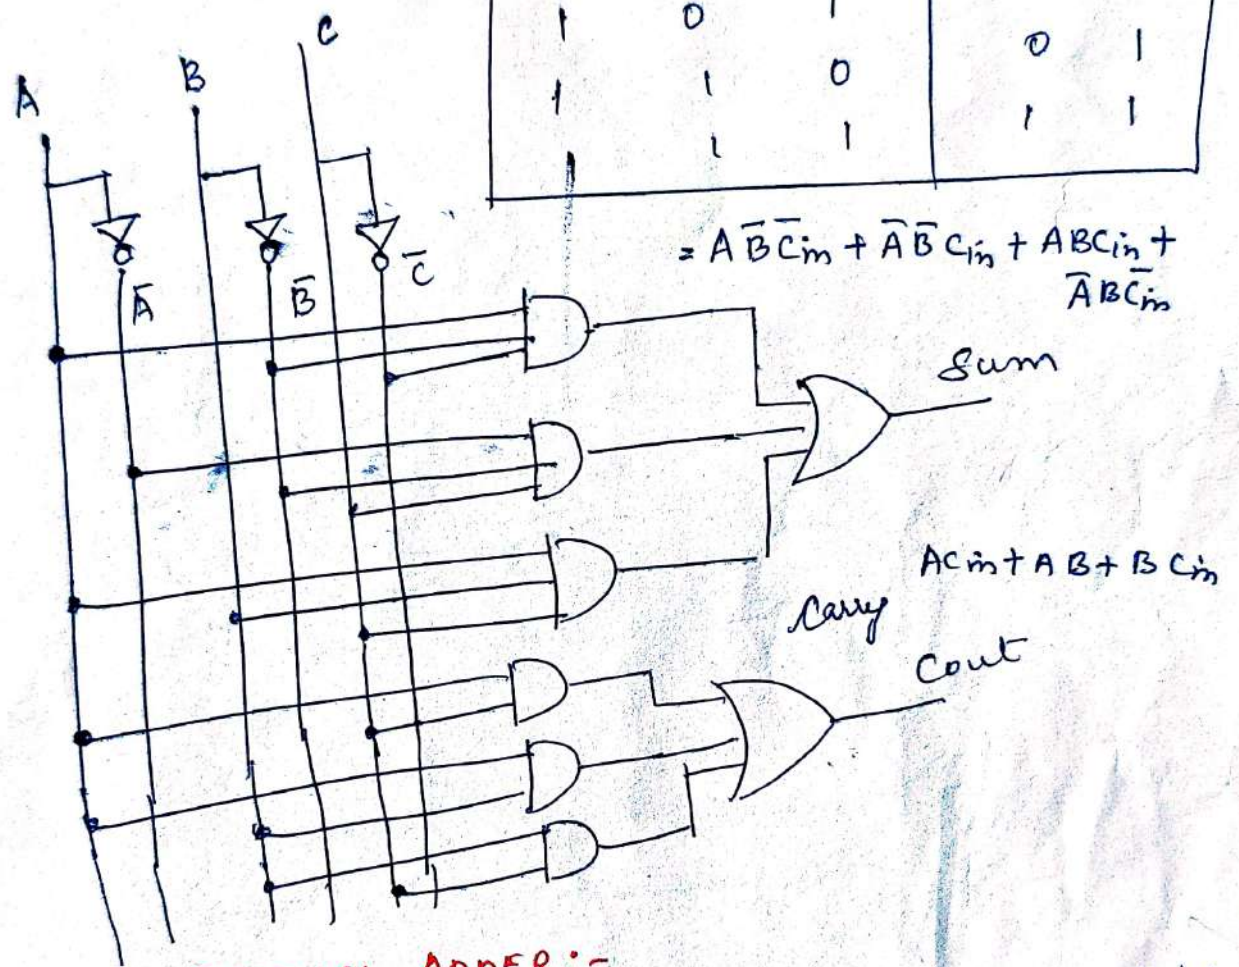 C
1 0 1
0 1
B
1 1 0
A
1 1
1 1
= A B̅ C̅in + A̅ B̅ Cin + ABCin +
A̅ B C̅in
A̅ B̅ C̅
Sum
ACin + AB + BCin
Carry
Cout
ADDER :-